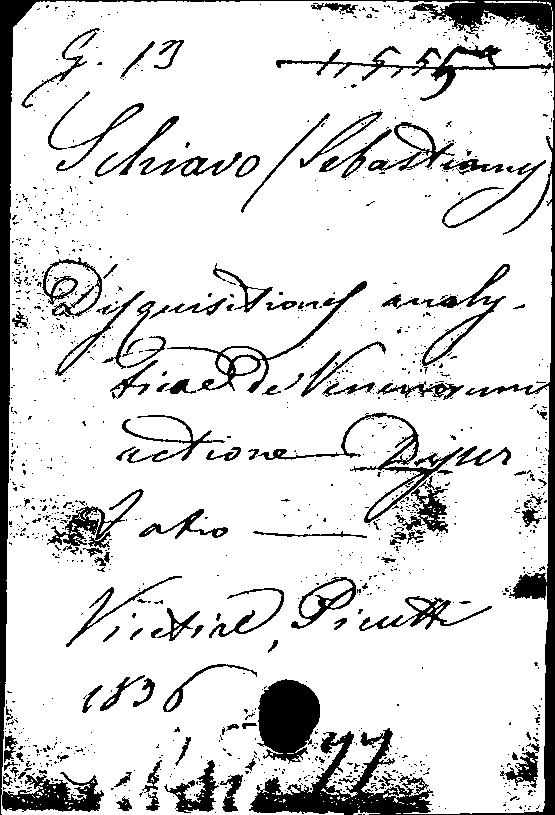 G. 13 1.5.55
Schiavo (Sebastianus)
Disquisitiones analy-
ticae de Venenorum
actione — Disser
tatio —
Vicetiae, Picutti
1836
77